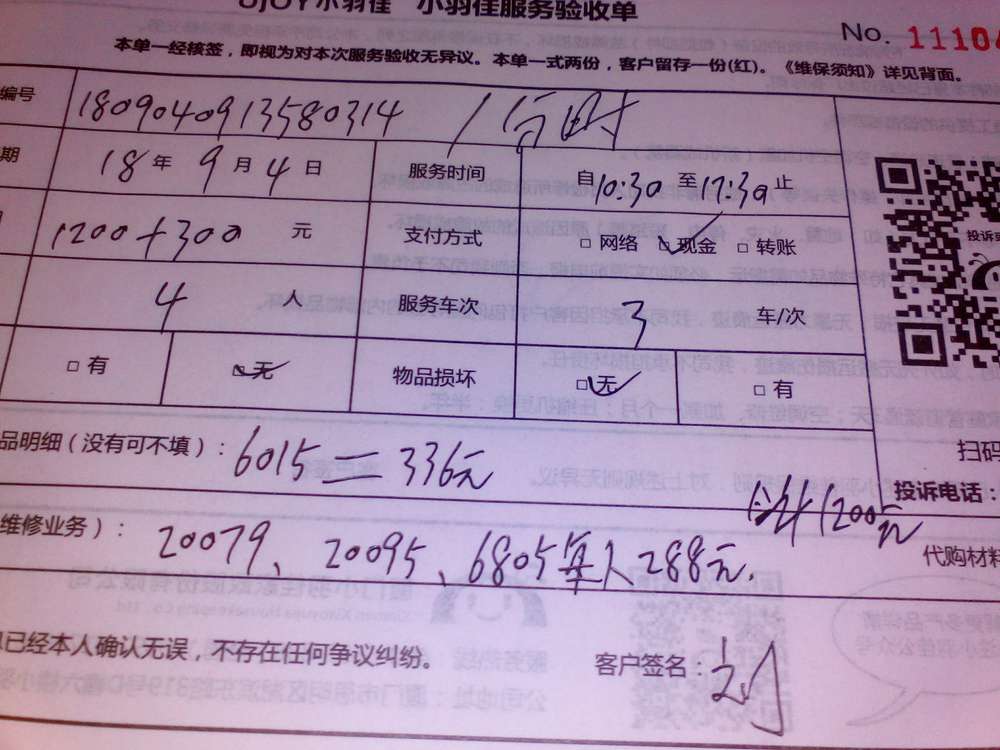 UJOY小羽佳 小羽佳服务验收单
No. 1110
本单一经核签，即视为对本次服务验收无异议。本单一式两份，客户留存一份(红)。《维保须知》详见背面。
编号 1809040913580314
期 18 年 9 月 4 日 服务时间 自10:30 至17:30止
1200+300 元 支付方式 □ 网络 ☑现金 □ 转账
4 人 服务车次 3 车/次
□ 有 ☑无 物品损坏 ☑无 □ 有
扫码
品明细（没有可不填）: 6015 = 336元
投诉电话：
1200元
维修业务）: 20079、20095、6805每人288元.
代购材料
已经本人确认无误，不存在任何争议纠纷。 客户签名：